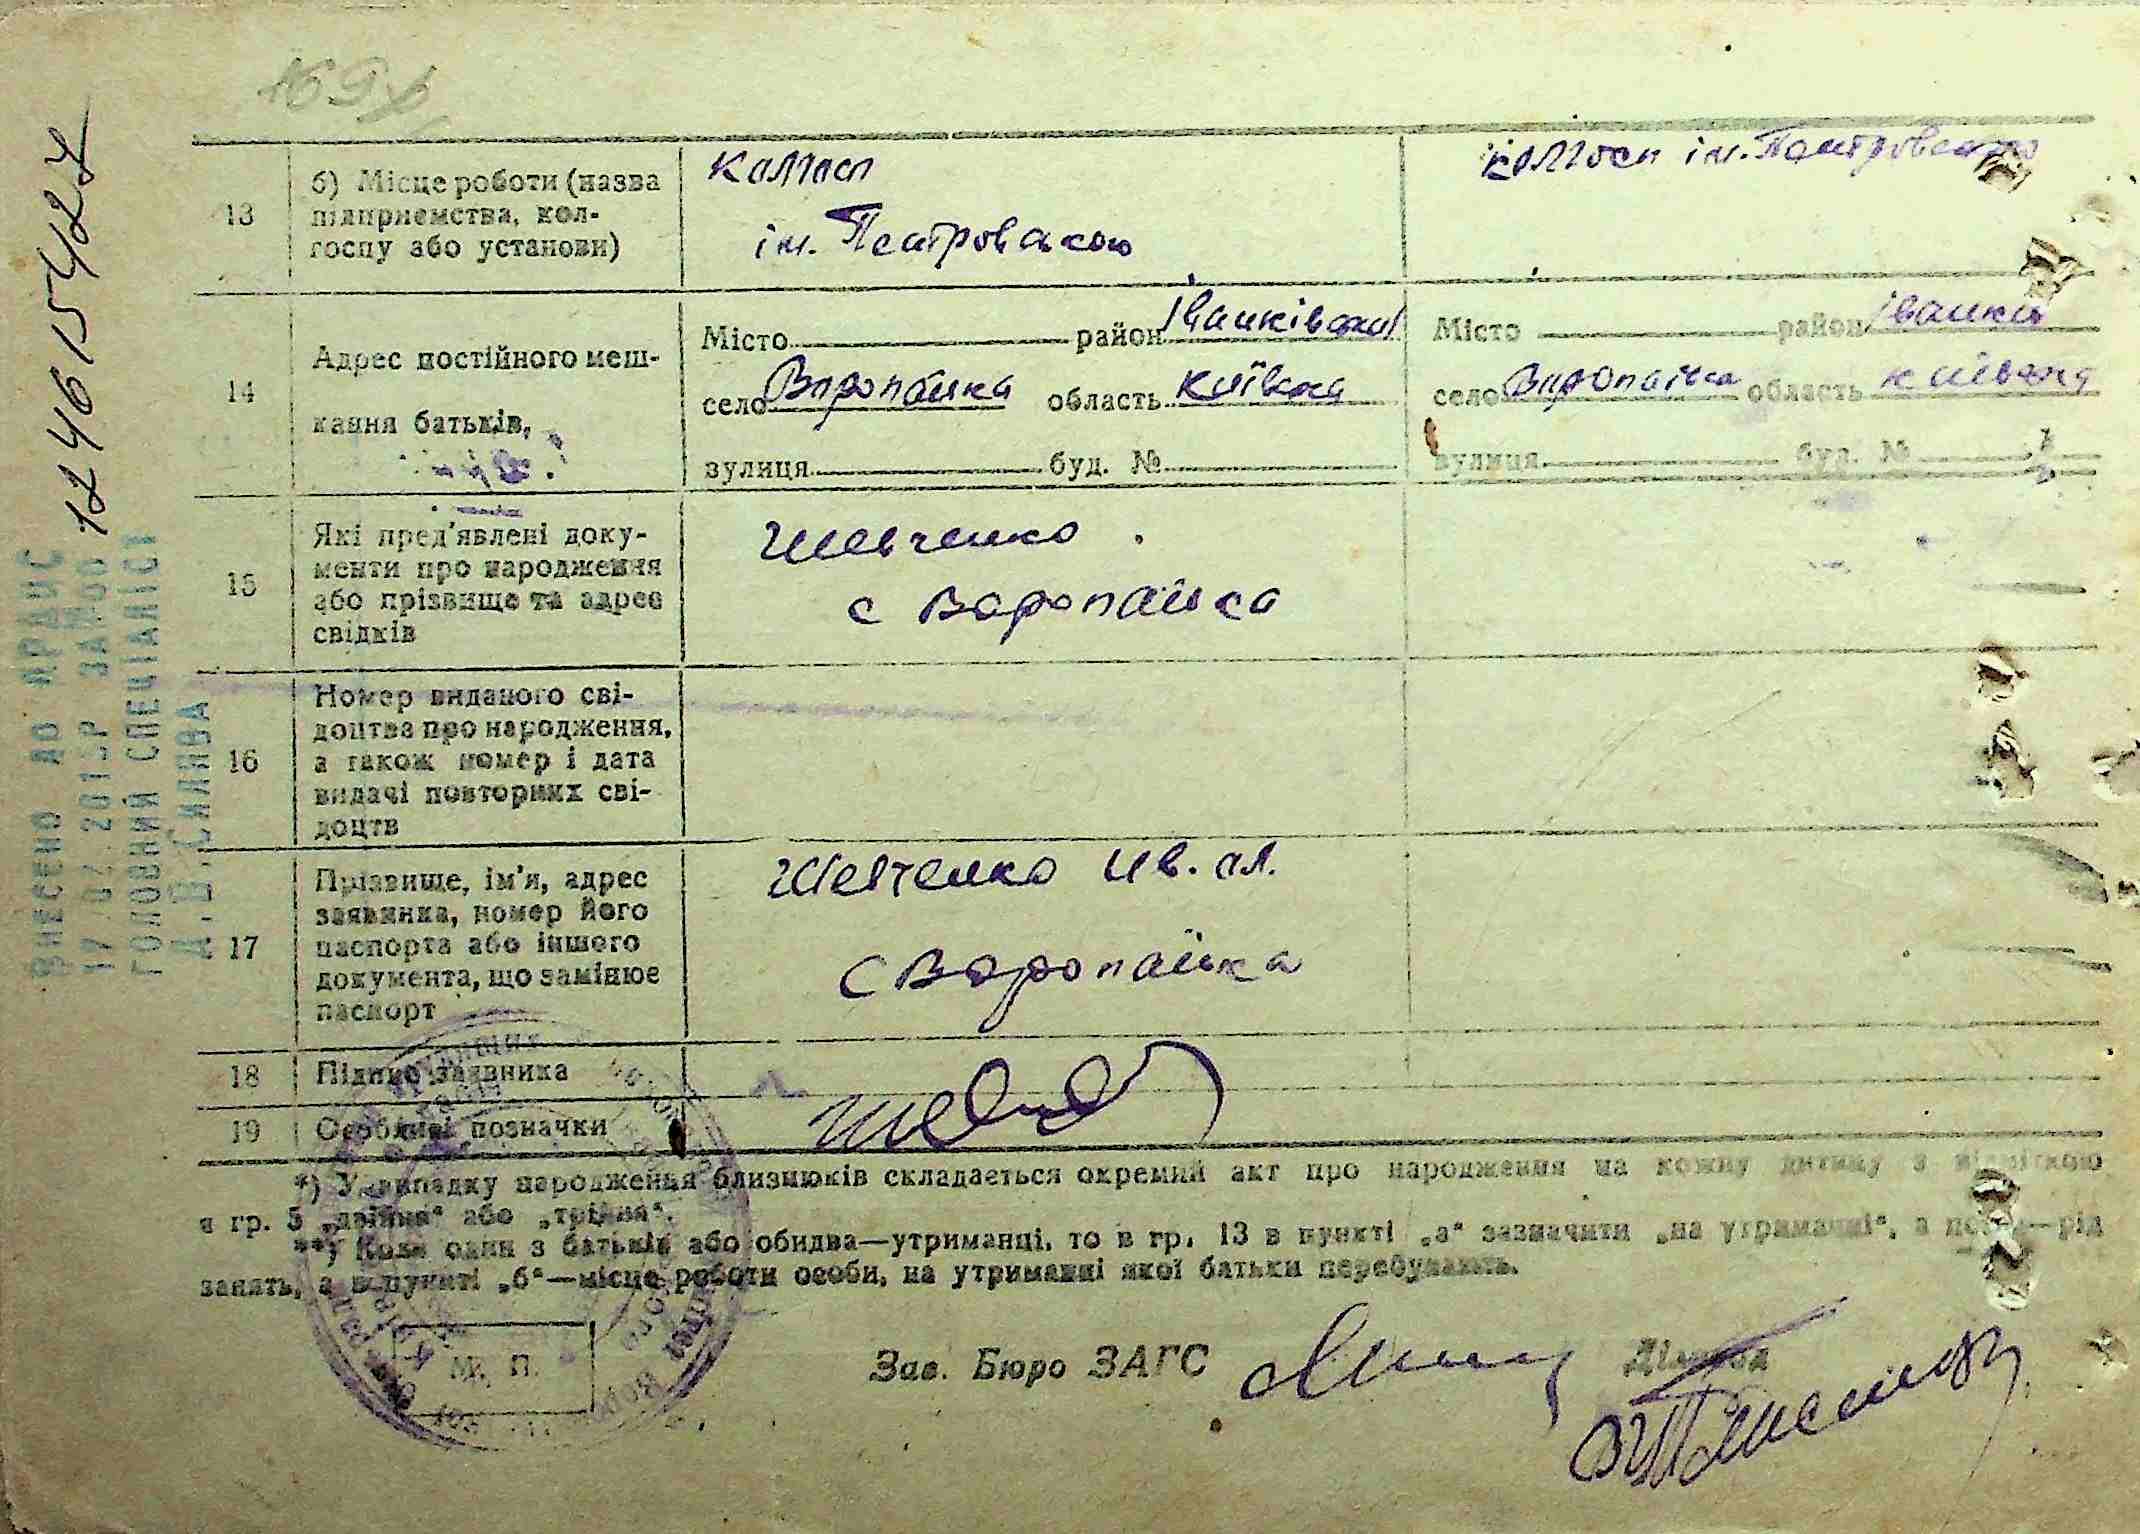 13
б) Місце роботи (назва
підприємства, кол-
госпу або установи)
колгосп
ім. Петровського
колгосп ім. Петровського
14
Адрес постійного меш-
кання батьків,
Місто район Іванківський
село Воропаївка область Київска
вулиця буд. №
Місто район Іванків
село Воропаївка область Київска
вулиця буд. №
15
Які пред'явлені доку-
менти про народження
або прізвище та адрес
свідків
Шевченко
с Воропаївка
16
Номер виданого сві-
доцтва про народження,
а також номер і дата
видачі повторних сві-
доцтв
17
Прізвище, ім'я, адрес
заявника, номер його
паспорта або іншого
документа, що замінює
паспорт
Шевченко Ив. Ал.
с Воропаївка
18
Підпис заявника
19
Особливі позначки
*) У випадку народження близнюків складається окремий акт про народження на кожну дитину з відміткою
в гр. 5 „двійня“ або „трійня“.
**) Коли один з батьків або обидва—утриманці, то в гр. 13 в пункті „а“ зазначити „на утриманні“, а потім—рід
занять, а в пункті „б“—місце роботи особи, на утриманні якої батьки перебувають.
М. П.
Зав. Бюро ЗАГС
Діловод
ВНЕСЕНО ДО ДРАЦС
ГОЛОВНИЙ СПЕЦІАЛІСТ